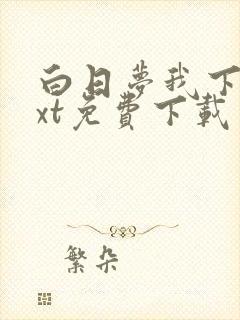 白日夢我下
xt免費下載
繁朵